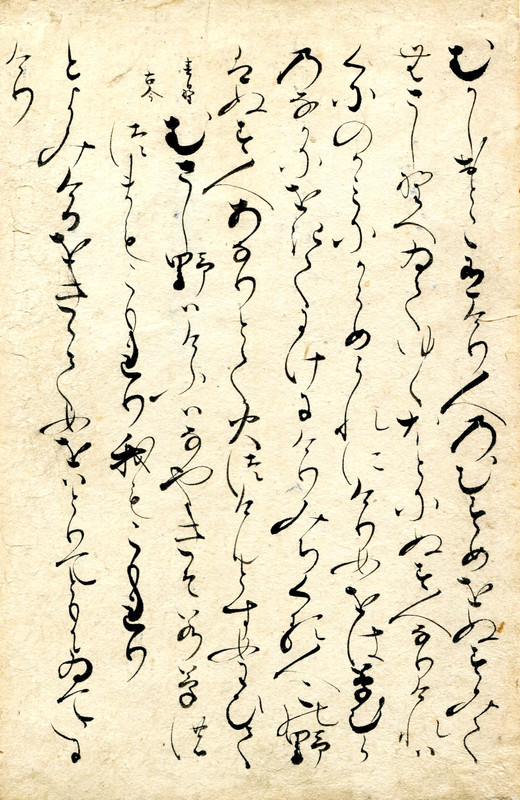 むかしおとこ有けり人乃むすめをぬすみて
むさし野へゐてゆくほとにぬす人なりけれハ
くにのかみにからめられにけり女をは草むら
乃なかにをきてにけにけりみちくる人この野
はぬす人あなりとて火つけんとす女わひて
古今
むさし野ハけふハなやきそ若草の
つまもこもれり我もこもれり
とよみけるをきゝて女をハとりてともにゐていに
けり